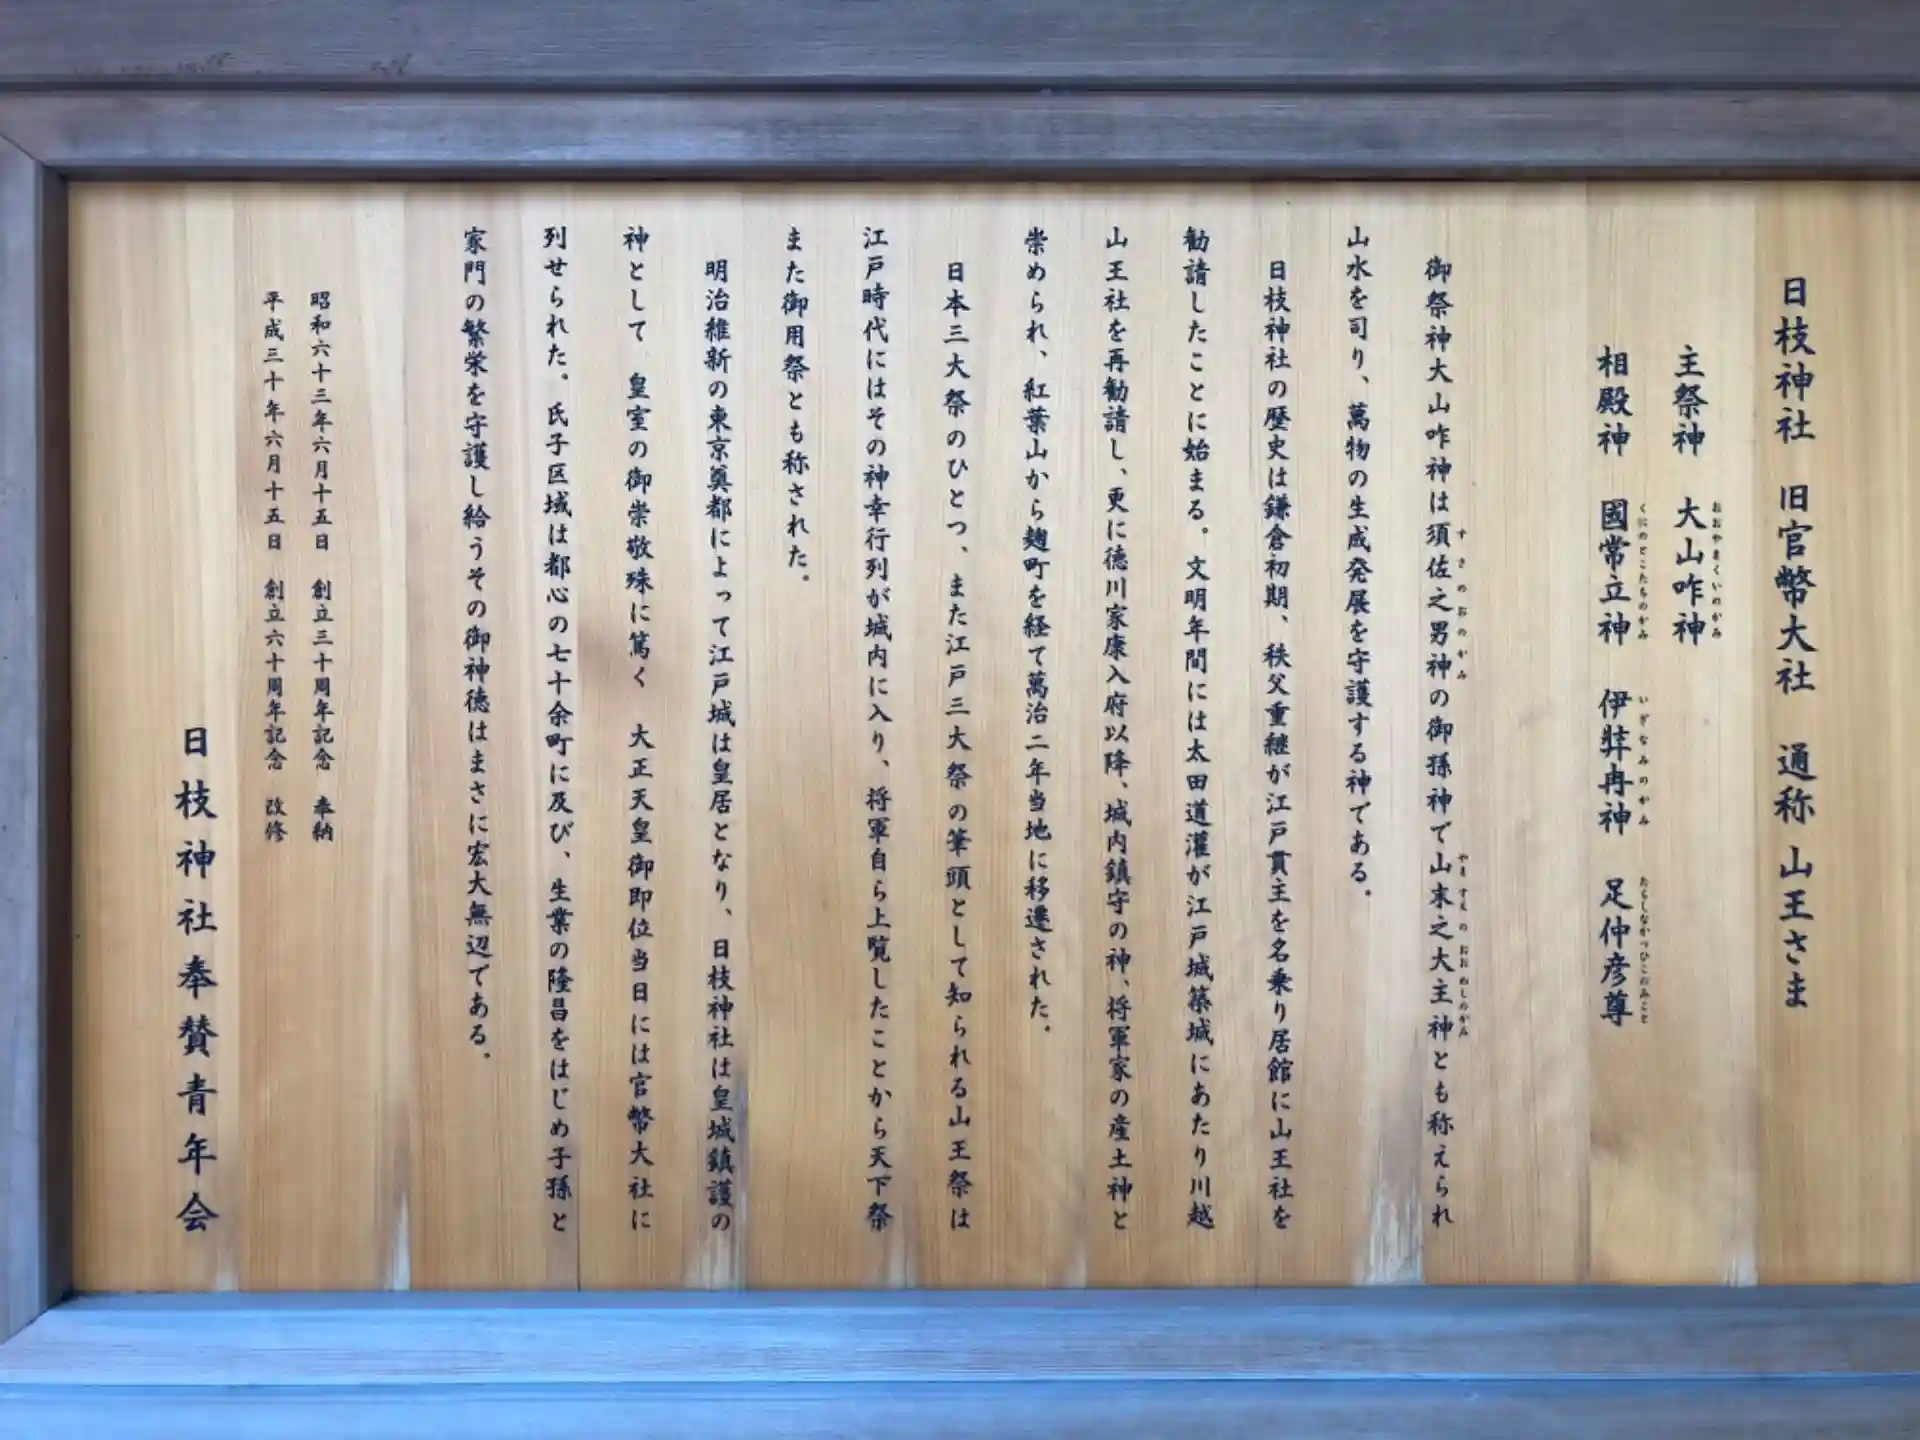 日枝神社 旧官幣大社 通称 山王さま
主祭神 大山咋神
おおやまくいのかみ
相殿神 國常立神 伊弉冉神 足仲彦尊
くにのとこたちのかみ いざなみのかみ たらしなかつひこのみこと
御祭神大山咋神は須佐之男神の御孫神で山末之大主神とも称えられ
すさのおのかみ やますえのおおぬしのかみ
山水を司り、萬物の生成発展を守護する神である。
日枝神社の歴史は鎌倉初期、秩父重継が江戸貫主を名乗り居館に山王社を
勧請したことに始まる。文明年間には太田道灌が江戸城築城にあたり川越
山王社を再勧請し、更に徳川家康入府以降、城内鎮守の神、将軍家の産土神と
崇められ、紅葉山から麹町を経て萬治二年当地に移遷された。
日本三大祭のひとつ、また江戸三大祭の筆頭として知られる山王祭は
江戸時代にはその神幸行列が城内に入り、将軍自ら上覧したことから天下祭
また御用祭とも称された。
明治維新の東京奠都によって江戸城は皇居となり、日枝神社は皇城鎮護の
神として 皇室の御崇敬殊に篤く 大正天皇御即位当日には官幣大社に
列せられた。氏子区域は都心の七十余町に及び、生業の隆昌をはじめ子孫と
家門の繁栄を守護し給うその御神徳はまさに宏大無辺である。
昭和六十三年六月十五日 創立三十周年記念 奉納
平成三十年六月十五日 創立六十周年記念 改修
日枝神社奉賛青年会